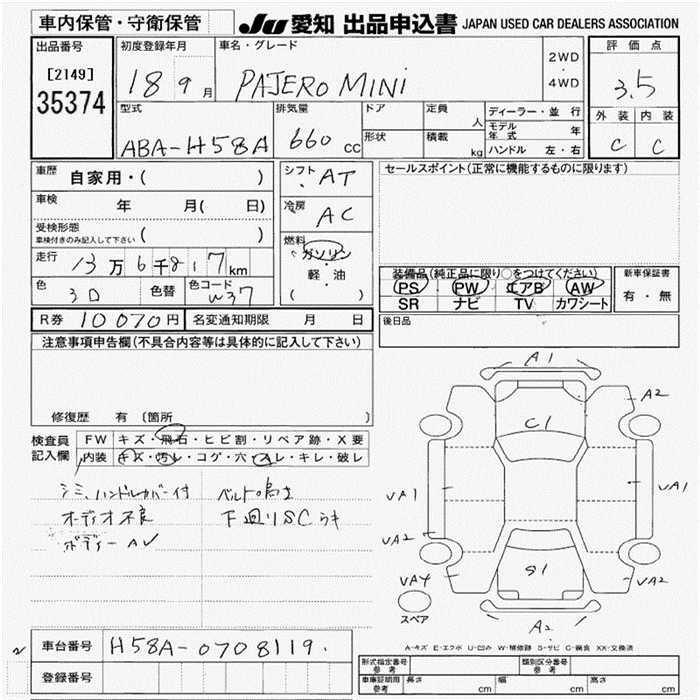 車内保管・守衛保管
JU 愛知 出品申込書 JAPAN USED CAR DEALERS ASSOCIATION
出品番号
[2149]
35374
初度登録年月
18 9月
車名・グレード
PAJERO MINI
2WD
・
4WD
評価点
3.5
外装 内装
C C
型式
ABA-H58A
排気量
660 cc
ドア
形状
定員 人
積載 kg
ディーラー・並行
モデル年式 年
ハンドル 左・右
車歴 自家用・( )
車検 年 月( 日)
受検形態
車検付きのみ記入して下さい ( )
走行 13万6千817km
色 3D 色替 色コード W37
シフト AT
冷房 AC
燃料
ガソリン
・
軽油
( )
セールスポイント(正常に機能するものに限ります)
装備品(純正品に限り○をつけてください)
PS PW エアB AW
SR ナビ TV カワシート
新車保証書
有・無
R券 10070円 名変通知期限 月 日
後日品
注意事項申告欄(不具合内容等は具体的に記入して下さい)
修復歴 有 〔箇所
検査員記入欄
FW キズ・飛石・ヒビ割・リペア跡・X要
内装 キズ・汚レ・コゲ・穴・スレ・キレ・破レ
シミ、ハンドルカバー付
オーディオ不良
ボディーAV
ベルト鳴き
下廻りSCらキ
A1
A2
C1
VA1
VA1
VA2
VA4
S1
VA2
A2
スペア
A-キズ E-エクボ U-凹み W-補修跡 S-サビ C-腐食 XX-交換済
車台番号 H58A-0708119.
登録番号
型式指定番号
参考
類別区分番号
参考
車庫証明用
参考
長さ cm 幅 cm 高さ cm